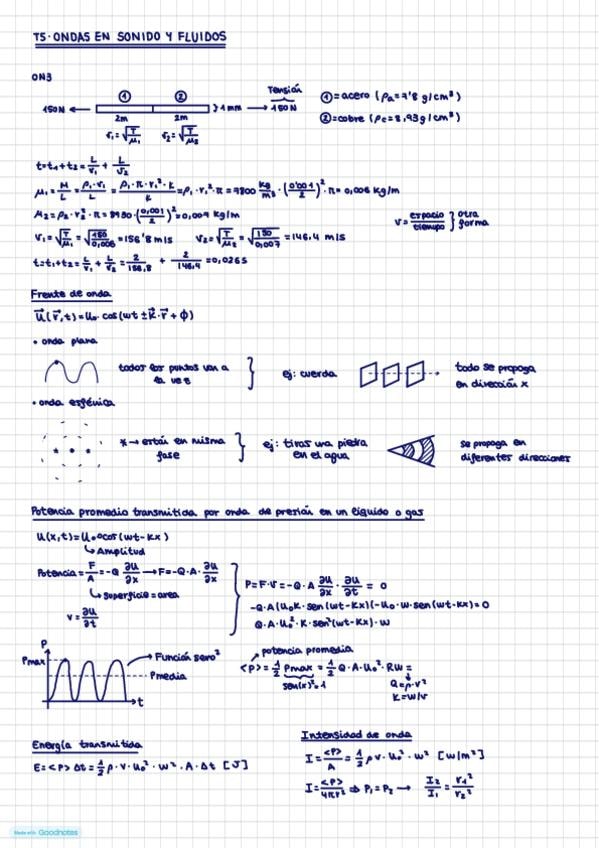 T5·ONDAS EN SONIDO Y FLUIDOS
ON3
150N ← ① ② }1mm → Tensión 150N
2m 2m
v₁=√(T/μ₁) v₂=√(T/μ₂)
①=acero (ρa=7'8 g/cm³)
②=cobre (ρc=8,93g/cm³)
t=t₁+t₂=L/v₁ + L/v₂
μ₁=M/L=ρ₁·V₁/L=ρ₁·π·r₁²·L/L=ρ₁·r₁²·π=7800 kg/m³·(0'001/2)²·π=0,006 kg/m
μ₂=ρ₂·r₂²·π=8930·(0,001/2)²=0,007 kg/m
V₁=√(T/μ₁)=√(150/0,006)=156'8 m/s V₂=√(T/μ₂)=√(150/0,007)=146,4 m/s
v=espacio/tiempo } otra forma
t=t₁+t₂=L/v₁+L/v₂=2/156,8 + 2/146,4=0,026s
Frente de onda
u⃗(r⃗,t)=u₀·cos(wt±k⃗·r⃗+ϕ)
• onda plana
todos los puntos van a
la vez
ej: cuerda
todo se propaga
en dirección x
• onda esférica
*→están en misma
fase
ej: tiras una piedra
en el agua
se propaga en
diferentes direcciones
Potencia promedio transmitida por onda de presión en un líquido o gas
u(x,t)=u₀·cos(wt-kx)
↳Amplitud
Potencia=F/A=-Q ∂u/∂x→F=-Q·A·∂u/∂x
↳superficie=area
v=∂u/∂t
P=F·v=-Q·A ∂u/∂x·∂u/∂t = 0
-Q·A(u₀k·sen(wt-kx)(-u₀·w·sen(wt-kx)=0
Q·A·u₀²·k·sen²(wt-kx)·w
P
Pmax
→Función seno²
Pmedia
t
potencia promedia
<P>=1/2 Pmax=1/2 Q·A·u₀²·kw=
sen(x)²=1
Q=ρ·v²
k=w/v
Energía transmitida
E=<P>Δt=1/2 ρ·v·u₀²·w²·A·Δt [J]
Intensidad de onda
I=<P>/A=1/2 ρv·u₀²·w² [w/m²]
I=<P>/4πr² ⇒ P₁=P₂ → I₂/I₁=r₁²/r₂²
Made with Goodnotes